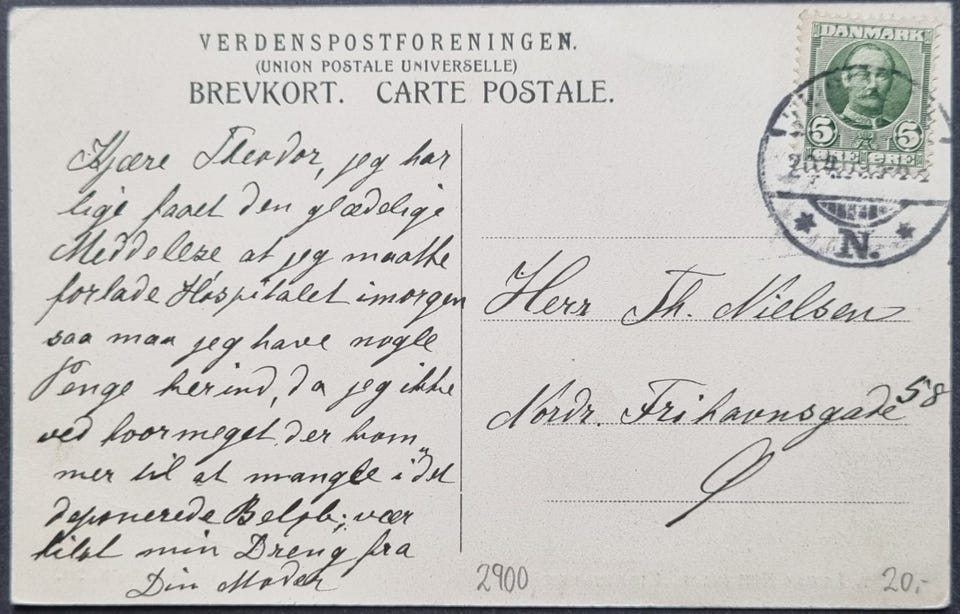 VERDENSPOSTFORENINGEN.
(UNION POSTALE UNIVERSELLE)
BREVKORT. CARTE POSTALE.
DANMARK
5 5
ØRE ØRE
N.
Kjære Theodor, jeg har
lige faaet den glædelige
Meddelelse at jeg maatte
forlade Hospitalet imorgen
saa maa jeg have nogle
Penge herind, da jeg ikke
ved hvormeget der kom„
mer til at mangle i det
deponerede Beløb; vær
hilst min Dreng fra
Din Moder
Herr Th. Nielsen
Nordr. Frihavnsgade 58
Ø
2900
20,-